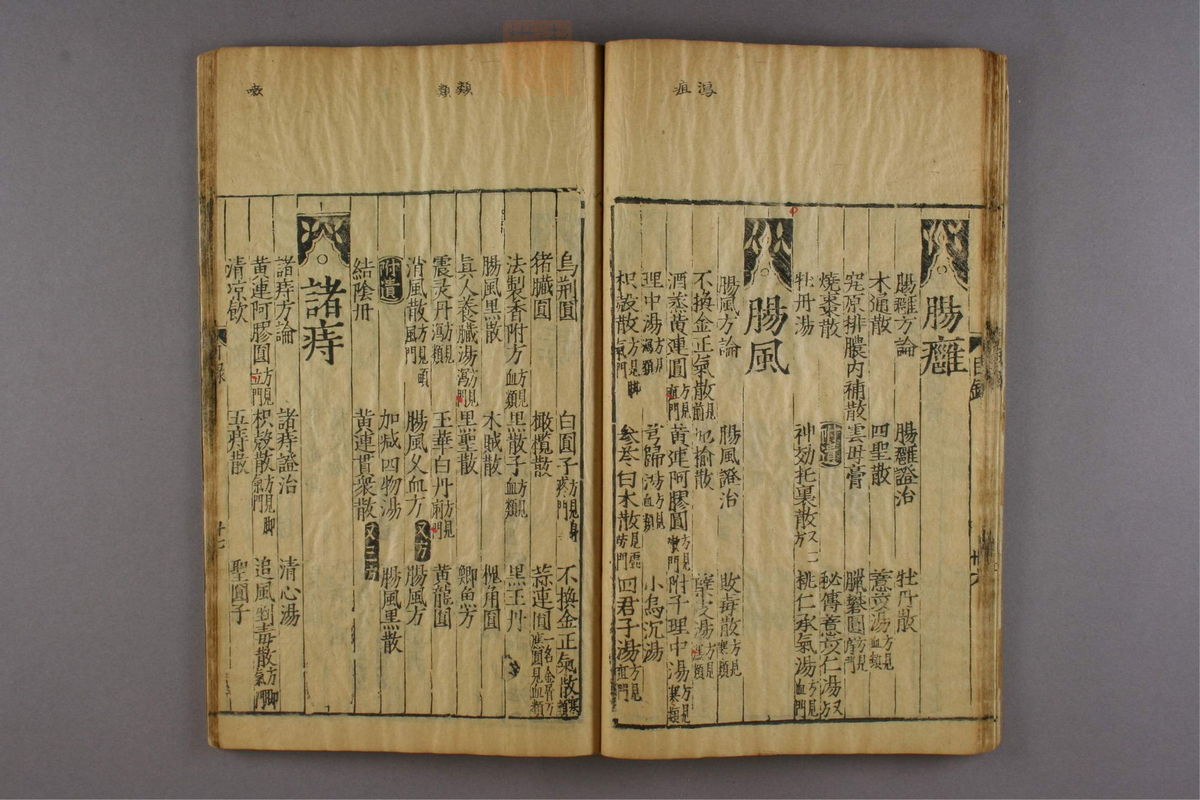 腸癰
腸癰方論 腸癰證治 牡丹散
木通散 四聖散 薏苡湯方見血類
究原排膿內補散 雲母膏 臘礬圓方見癰門
燒棗散 附遺 秘傳薏苡仁湯
牡丹湯 神効托裏散 桃仁承氣湯方見血門
腸風
腸風方論 腸風證治 敗毒散方見寒類
不換金正氣散 地榆散 蘗皮湯
酒蒸黃連圓方見疸門 黃連阿膠圓方見嗽門 附子理中湯方見寒類
理中湯方見瀉類 芎歸湯方見血類 小烏沉湯
枳殼散方見脚氣門 參苓白朮散 四君子湯方見疸門
目錄
烏荆圓 白圓子 不換金正氣散
猪臟圓 橄欖散 蒜連圓
法製香附方方見血類 黑散子方見血類 黑玉丹
腸風黑散 木賊散 槐角圓
真人養臟湯方見瀉門 黑聖散 鯽魚方
震灵丹方見瀉類 玉華白丹 黃龍圓
消風散方見頭風門 腸風又血方 又方 腸風方
附遺 加减四物湯 腸風黑散
結陰丹 黃連貫衆散 又三方
諸痔
諸痔方論 諸痔證治 清心湯
黃連阿膠圓 枳殼散方見脚氣門 追風毒散
清凉飲 五痔散 聖圓子
十七
瀉 疸
類 類
嗽